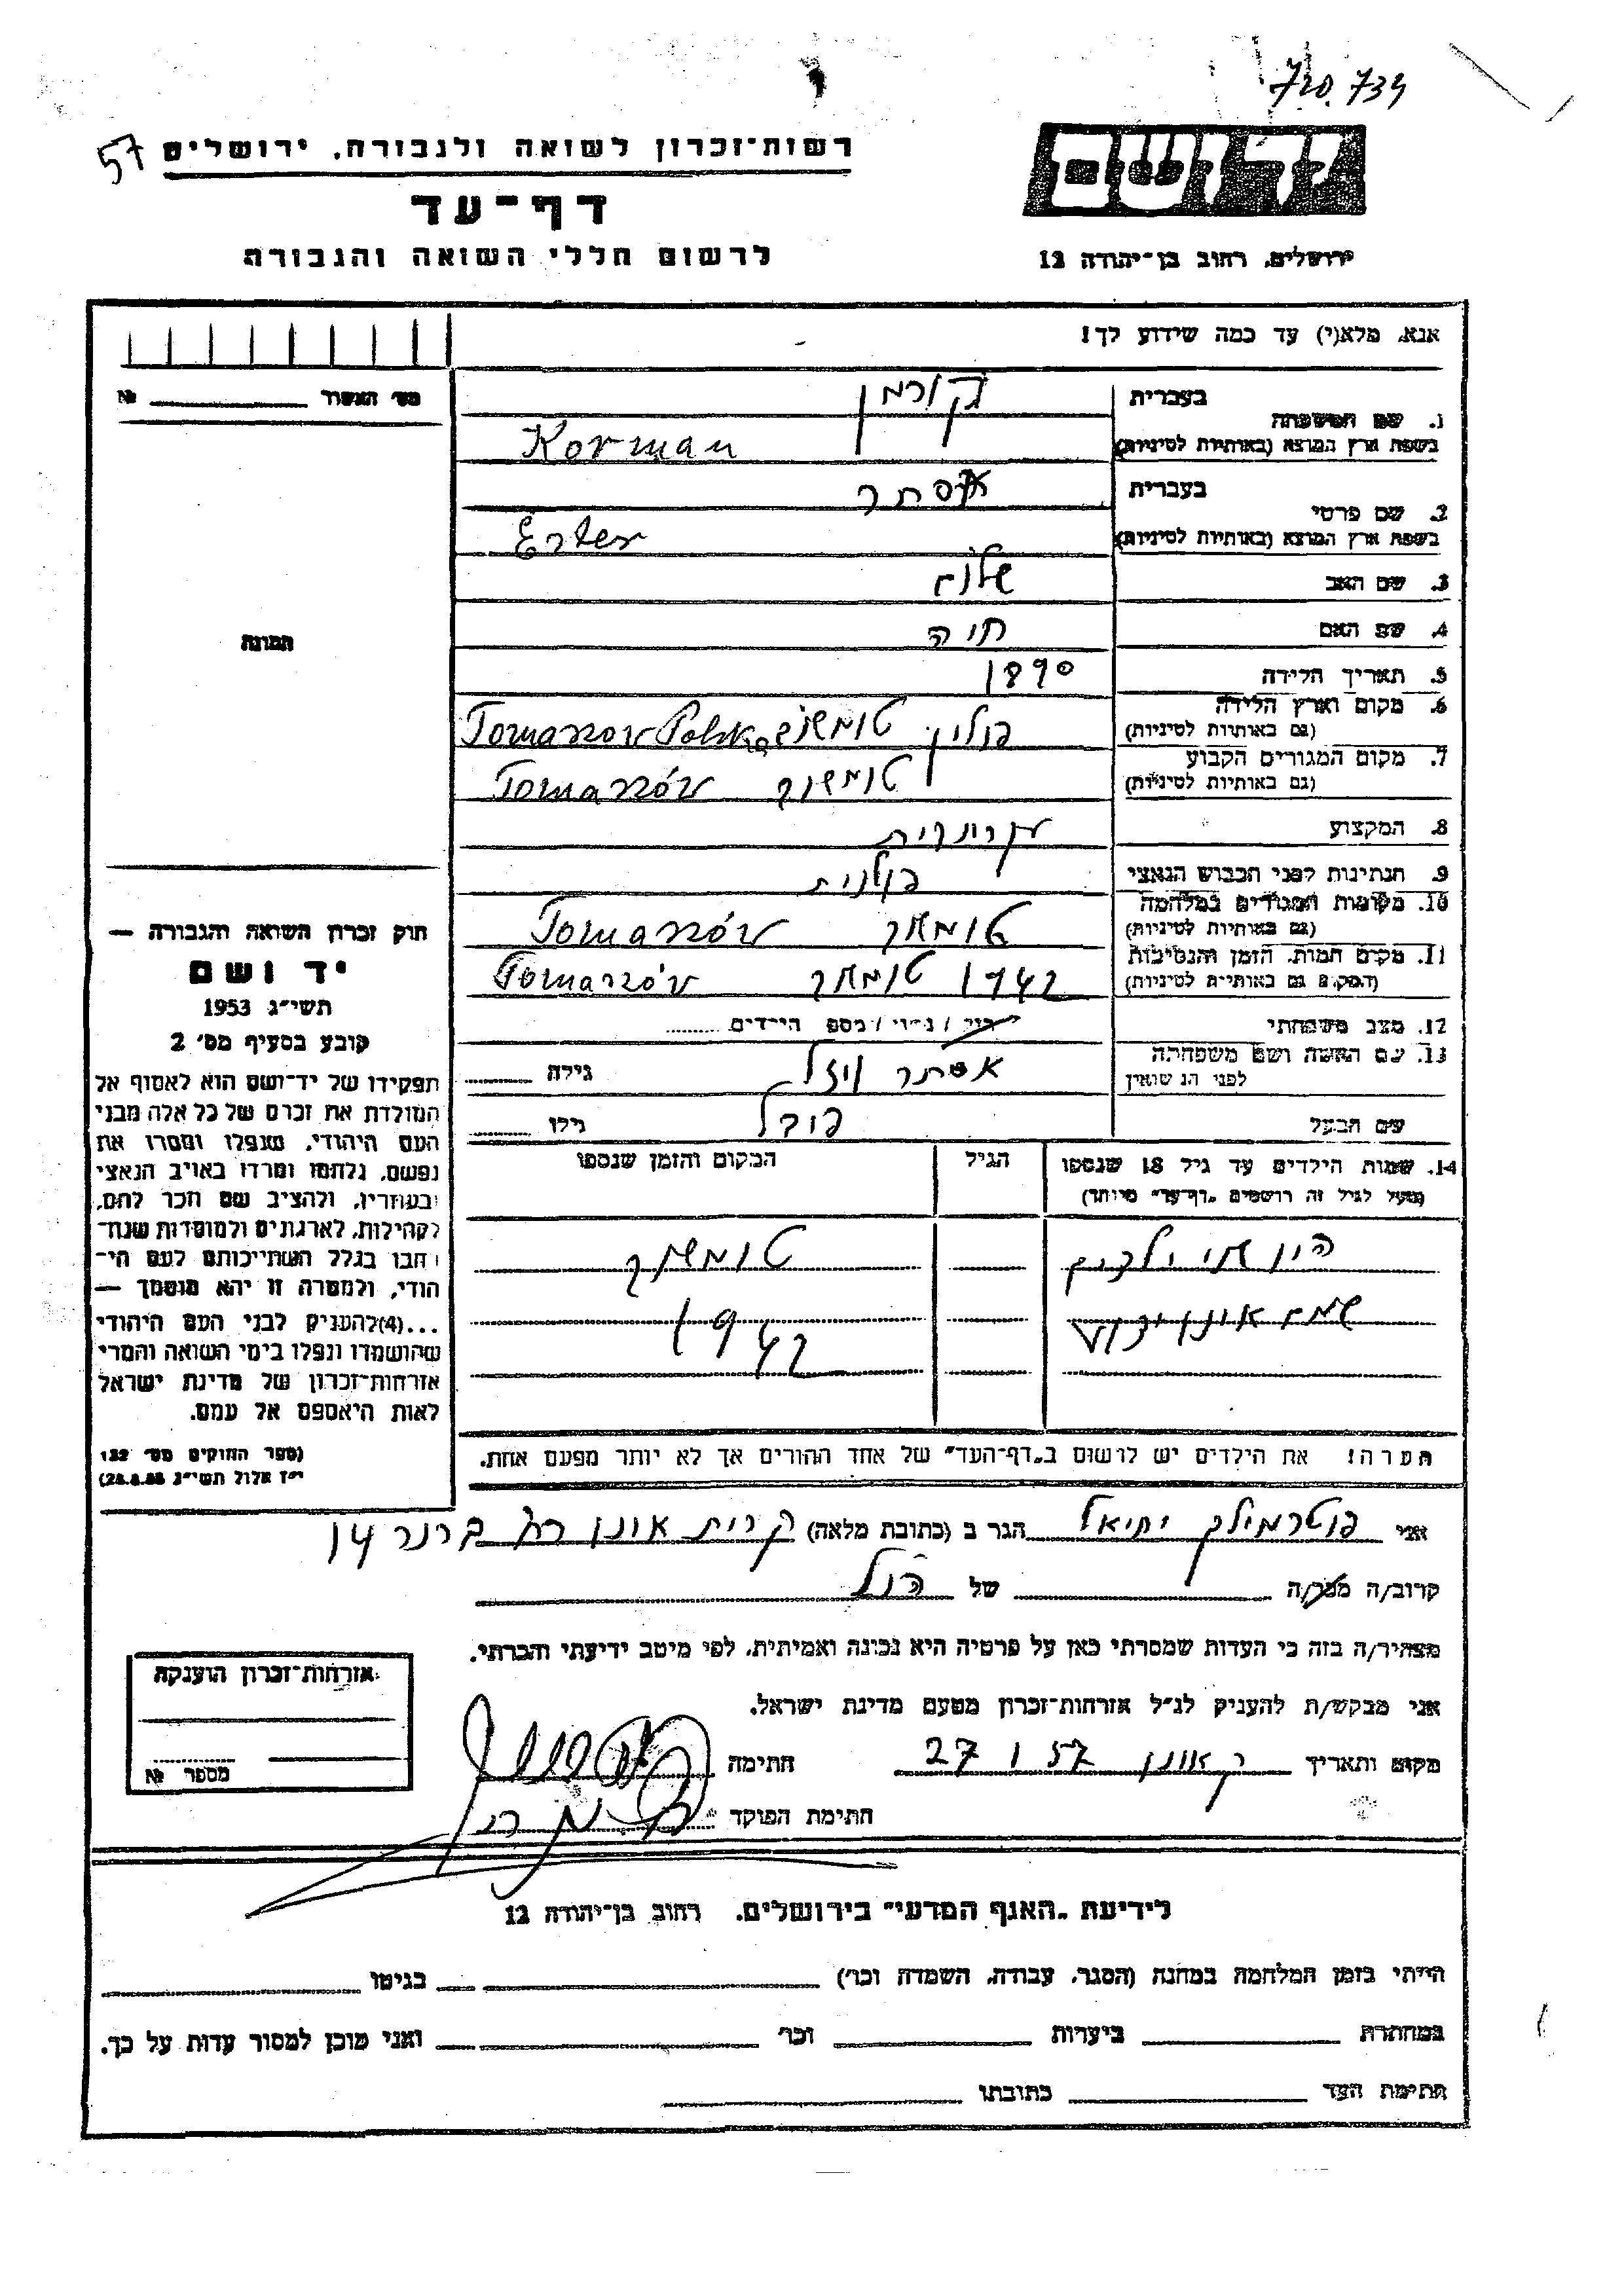 720.734
57
רשות־זכרון לשואה ולגבורה, ירושלים
דף־עד
לרשום חללי השואה והגבורה
יד ושם
ירושלים, רחוב בן־יהודה 12
אנא, מלא(י) עד כמה שידוע לך!
מס׳ האשור № 
בעברית קורמן
1. שם המשפחה
בשפת ארץ המוצא (באותיות לטיניות) Korman
בעברית אסתר
2. שם פרטי
בשפת ארץ המוצא (באותיות לטיניות) Ester
3. שם האב
4. שם האם חיה
5. תאריך הלידה 1890
6. מקום וארץ הלידה (גם באותיות לטיניות) פולין טומשוב Tomaszow Polska
7. מקום המגורים הקבוע (גם באותיות לטיניות) טומשוב Tomaszów
8. המקצוע
9. הנתינות לפני הכבוש הנאצי פולנית
10. מקומות המגורים במלחמה (גם באותיות לטיניות) Tomaszów
11. מקום המות, הזמן והנסיבות (המקום גם באותיות לטיניות) 1942 Tomaszów
12. מצב משפחתי רווק / נשוי / מספר הילדים
13. שם האשה ושם משפחתה לפני הנשואין אסתר גילה
שם הבעל גילו
14. שמות הילדים עד גיל 18 שנספו
(מעל לגיל זה רושמים „דף־עד״ מיוחד)
הגיל
המקום והזמן שנספו
היו שני ילדים טומשוב
1942
תמונה
חוק זכרון השואה והגבורה —
יד ושם
תשי״ג 1953
קובע בסעיף מס׳ 2
תפקידו של יד־ושם הוא לאסוף אל
המולדת את זכרם של כל אלה מבני
העם היהודי, שנפלו ומסרו את
נפשם, נלחמו ומרדו באויב הנאצי
ובעוזריו, ולהציב שם וזכר להם,
לקהילות, לארגונים ולמוסדות שנח־
רבו בגלל השתייכותם לעם הי־
הודי, ולמטרה זו יהא מוסמך —
...(4) להעניק לבני העם היהודי
שהושמדו ונפלו בימי השואה והמרי
אזרחות־זכרון של מדינת ישראל
לאות היאספם אל עמם.
(ספר החוקים מס׳ 132
י״ז אלול תשי״ג 28.8.53)
הערה! את הילדים יש לרשום ב„דף־העד״ של אחד ההורים אך לא יותר מפעם אחת.
אני פוטרמילך יחיאל הגר ב (כתובת מלאה) קרית אונו רח ברנר 14
קרוב/ה מכר/ה של
מצהיר/ה בזה כי העדות שמסרתי כאן על פרטיה היא נכונה ואמיתית, לפי מיטב ידיעתי והכרתי.
אני מבקש/ת להעניק לנ״ל אזרחות־זכרון מטעם מדינת ישראל.
מקום ותאריך ק אונו 27 1 57 חתימה
חתימת הפוקד
אזרחות־זכרון הוענקה
מספר №
לידיעת „האגף המדעי״ בירושלים, רחוב בן־יהודה 12
הייתי בזמן המלחמה במחנה (הסגר, עבודה, השמדה וכו׳) בגיטו
במחתרת ביערות וכו׳ ואני מוכן למסור עדות על כך.
חתימת העד כתובתו